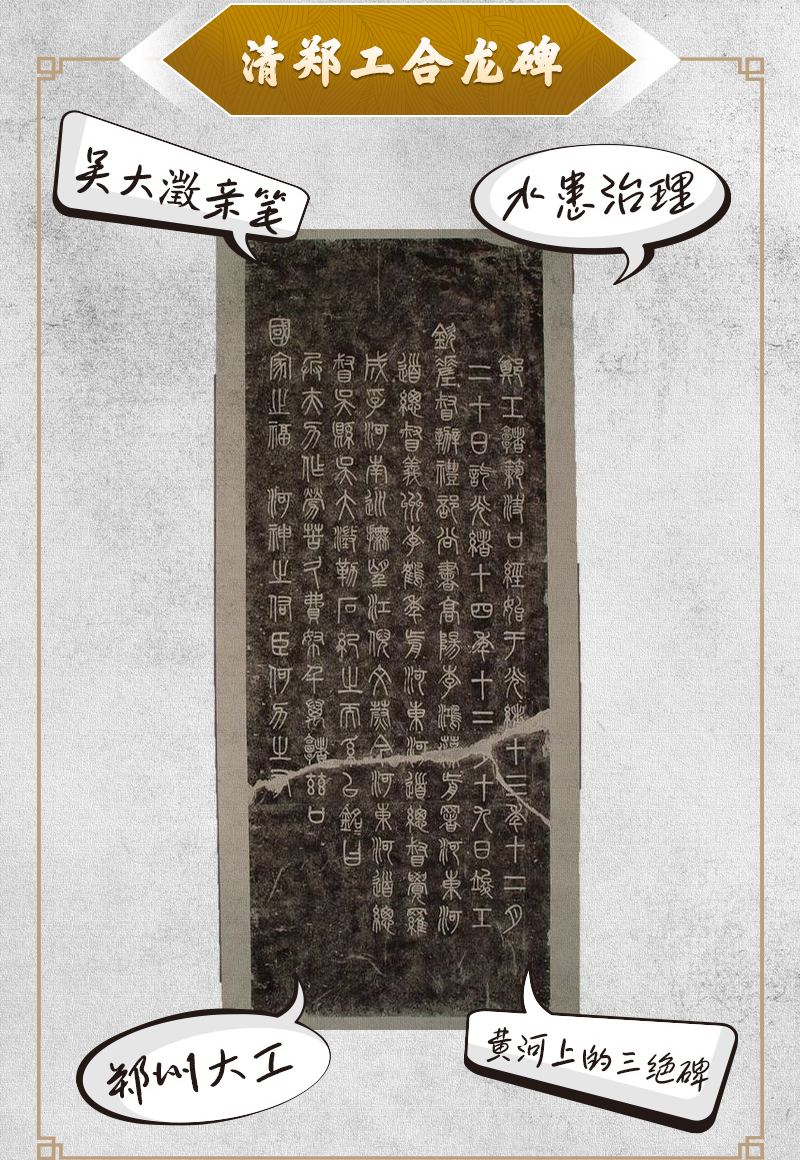 清郑工合龙碑
吴大澂亲笔
水患治理
鄭工堵築決口經始于光緒十三年十二月
二十日訖光緒十四年十二月十九日竣工
欽差督辦禮部尚書高陽李鴻藻前署河東河
道總督義州李鶴年前河東河道總督覺羅
成孚河南巡撫望江倪文蔚今河東河道總
督吳縣吳大澂勒石紀之而系以銘曰
兵夫力作勞苦久費帑千萬堵茲口
國家之福 河神之佑臣何力之有
郑州大工
黄河上的三绝碑